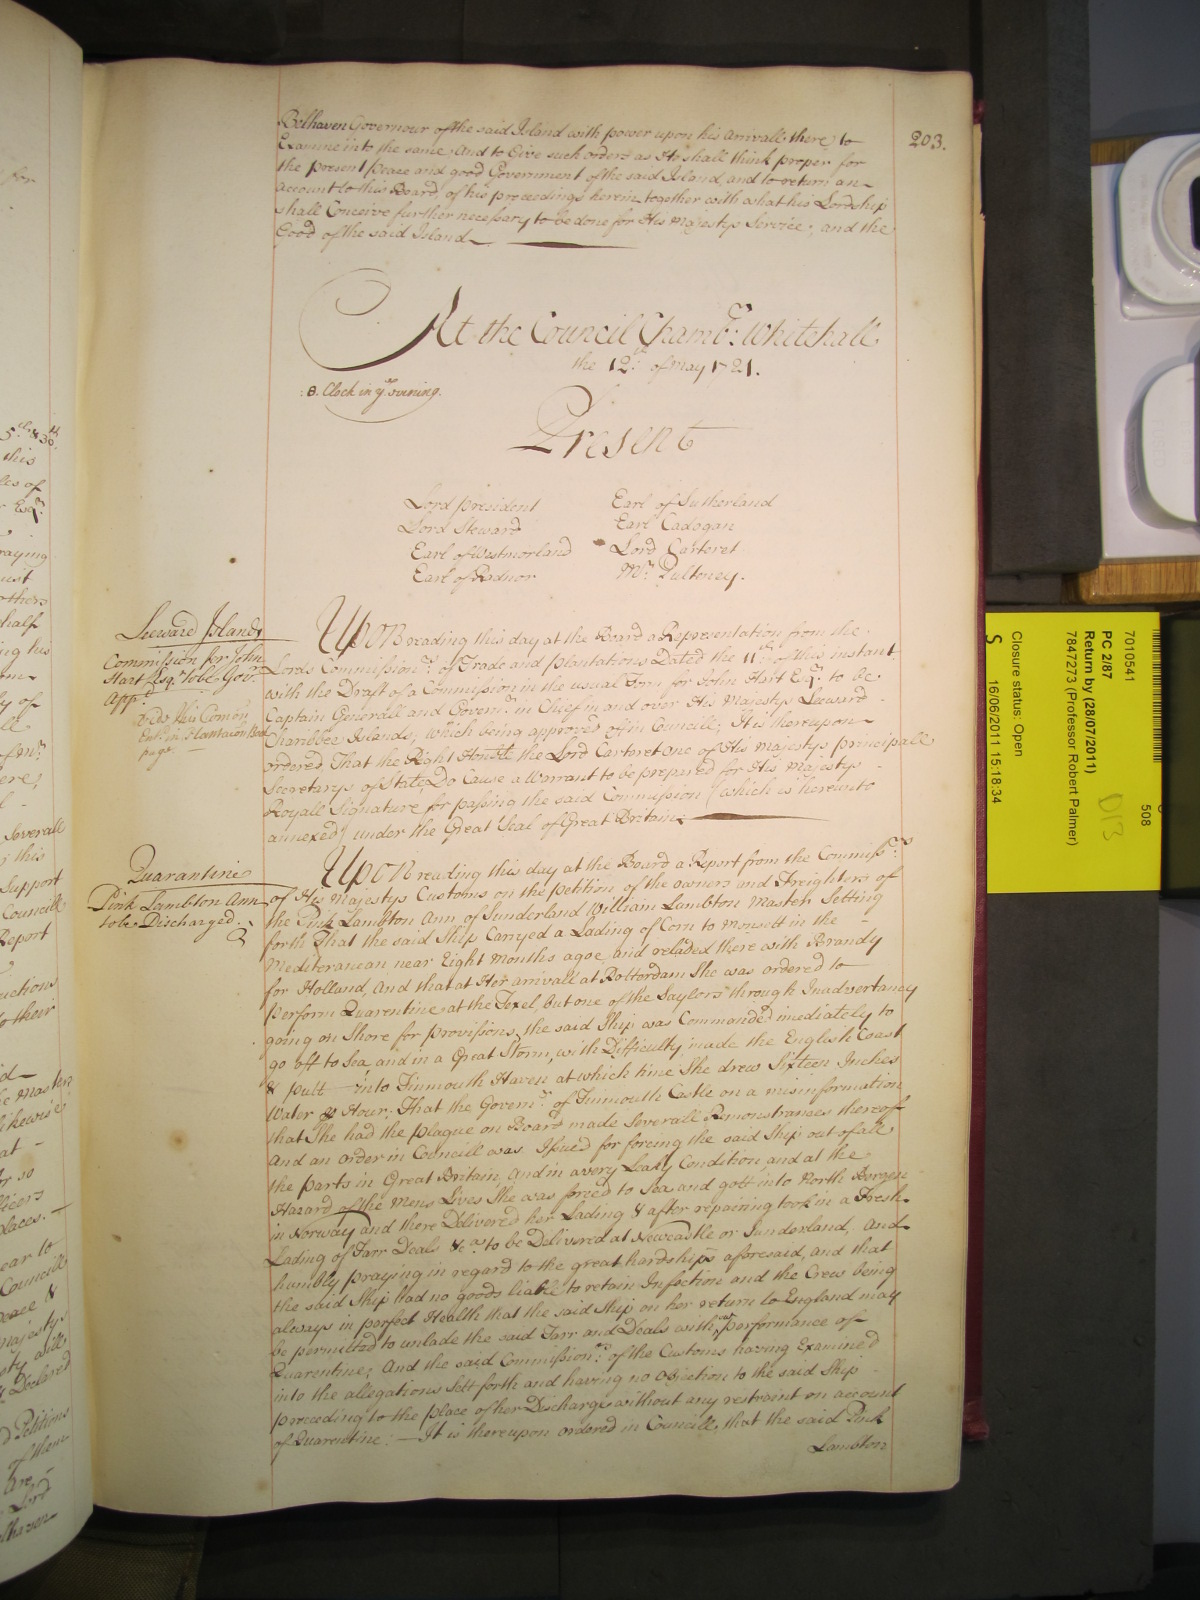 203.
Belhaven Governour of the said Island with power upon his arrivall there to
Examine into the same, And to Give such orders as He shall think proper for
the present peace and good Government of the said Island, and to return an
account to this Board, of his proceedings herein, together with what his Lordship
shall Conceive further necessary to be done for His Majestys Service, and the
Good of the said Island
At the Council Chamb.r Whitehall
the 12.th of May 1721.
:8. Clock in y.e evening.
Present
Lord President Earl of Sutherland
Lord Steward Earl Cadogan
Earl of Westmorland Lord Carteret
Earl of Radnor M.r Pulteney.
Leeward Islands
Commission for John
Hart Esq.r to be Gov.r
App.d
Upon reading this day at the Board a Representation from the
Lords Commission.rs of Trade and plantations Dated the 11.th of this instant
with the Draft of a Commission in the usual Form for John Hart Esq.r to be
Captain Generall and Govern.r in Chief in and over His Majestys Leeward
Charibbee Islands, which being approved of in Councill; It is thereupon
ordered, That the Right Hon.ble the Lord Carteret one of His Majestys principall
Secretarys of State Do Cause a Warrant to be prepared for His Majestys
Royall Signature for passing the said Commission (which is hereunto
annexed) under the Great Seal of Great Britain.
Quarantine
Pink Lambton Ann
to be Discharged.
Upon reading this day at the Board a Report from the Commiss.rs
of His Majestys Customs on the petition of the owners and Freighters of
the Pink Lambton Ann of Sunderland William Lambton Master Setting
forth That the said Ship Carryed a Lading of Corn to in the
Mediteranean near Eight Months agoe, and reladed there with Brandy
for Holland, And that at Her arrivall at Rotterdam She was ordered to
perform Quarentine at the Texel, but one of the Saylors through Inadvertancy
going on Shore for provisions, the said Ship was Commanded imediately to
go off to Sea, and in a Great Storm, with Difficulty made the English Coast
& putt into Tinmouth Haven at which time She drew Sixteen Inches
Water Hour; That the Govern.r of Tinmouth Castle on a misinformation
that She had the plague on Board made Severall Remonstrances thereof
And an order in Councill was Issued for forcing the said Ship out of all
the parts in Great Britain, And in a very Leaky Condition, and at the
Hazard of the Mens Lives She was forced to Sea, and gott into North Bergen
in Norway and there Delivered her Lading & after repairing took in a Fresh
Lading of Tarr Deals &c.a to be Delivered at Newcastle or Sunderland, And
humbly praying in regard to the great hardships aforesaid, and that
the said Ship had no goods liable to retain Infection and the Crew being
always in perfect Health that the said Ship on her return to England may
be permitted to unlade the said Tarr and Deals with.out performance of
Quarentine; And the said Commission.rs of the Customs having Examined
into the allegations Sett forth and having no objection to the said Ship
proceeding to the place of her Discharge without any restraint on account
of Quarentine: It is thereupon ordered in Councill, that the said Pink
Lambton
7010541
PC 2/87
Return by (28/07/2011)
7847273 (Professor Robert Palmer)
Closure status: Open
S
16/06/2011 15:18:34
508
D13